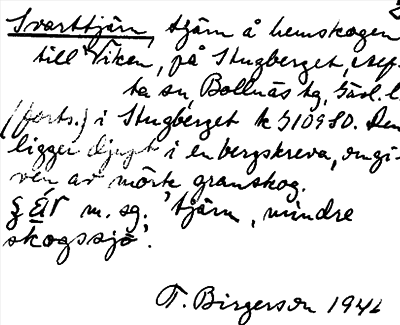 Svarttjärn, tjärn å hemskogen
till Viken, på Stugberget,
ta sn, Bollnäs tg, Gävl. l.
(forts.) i Stugberget k J10980. Den
ligger djupt i en bergskreva, omgi-
ven av mörk granskog.
m. sg. 'tjärn, mindre
skogssjö'.
T. Birgerson 1946